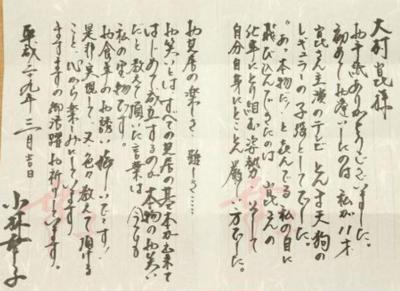 大村崑様
お手紙ありがとうございました。
初めてお逢いしたのは 私が11才
崑さん主演のテレビ とんま天狗の
レギュラーの子役としてでした。
"あ、本物だ!"と喜んでる私の目に
飛び込んできたのは 崑さんの
仕事にとり組む姿勢 そして
自分自身にとことん厳しい方でした。
お芝居の楽しさ、難しさ……
お笑いとは、すべての芝居の基本が出来て
はじめて成立するのよ 本物のお笑い
だと教えて頂いた言葉は 今でも
私の宝物です。
お食事のお誘い嬉しいです!
是非実現して 又、色々教えて頂ける
こと、心から楽しみにしています。
ますますの御活躍 お祈りしています。
平成二九年 三月吉日
小林幸子